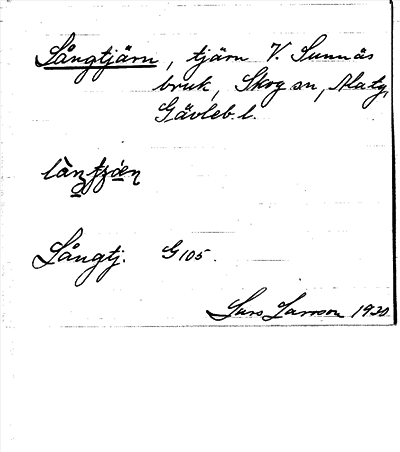 Långtjärn, tjärn V. Sunnäs
bruk, Skog sn, Ala tg,
Gävleb. l.
Långtj. G 105.
Lars Larsson 1930